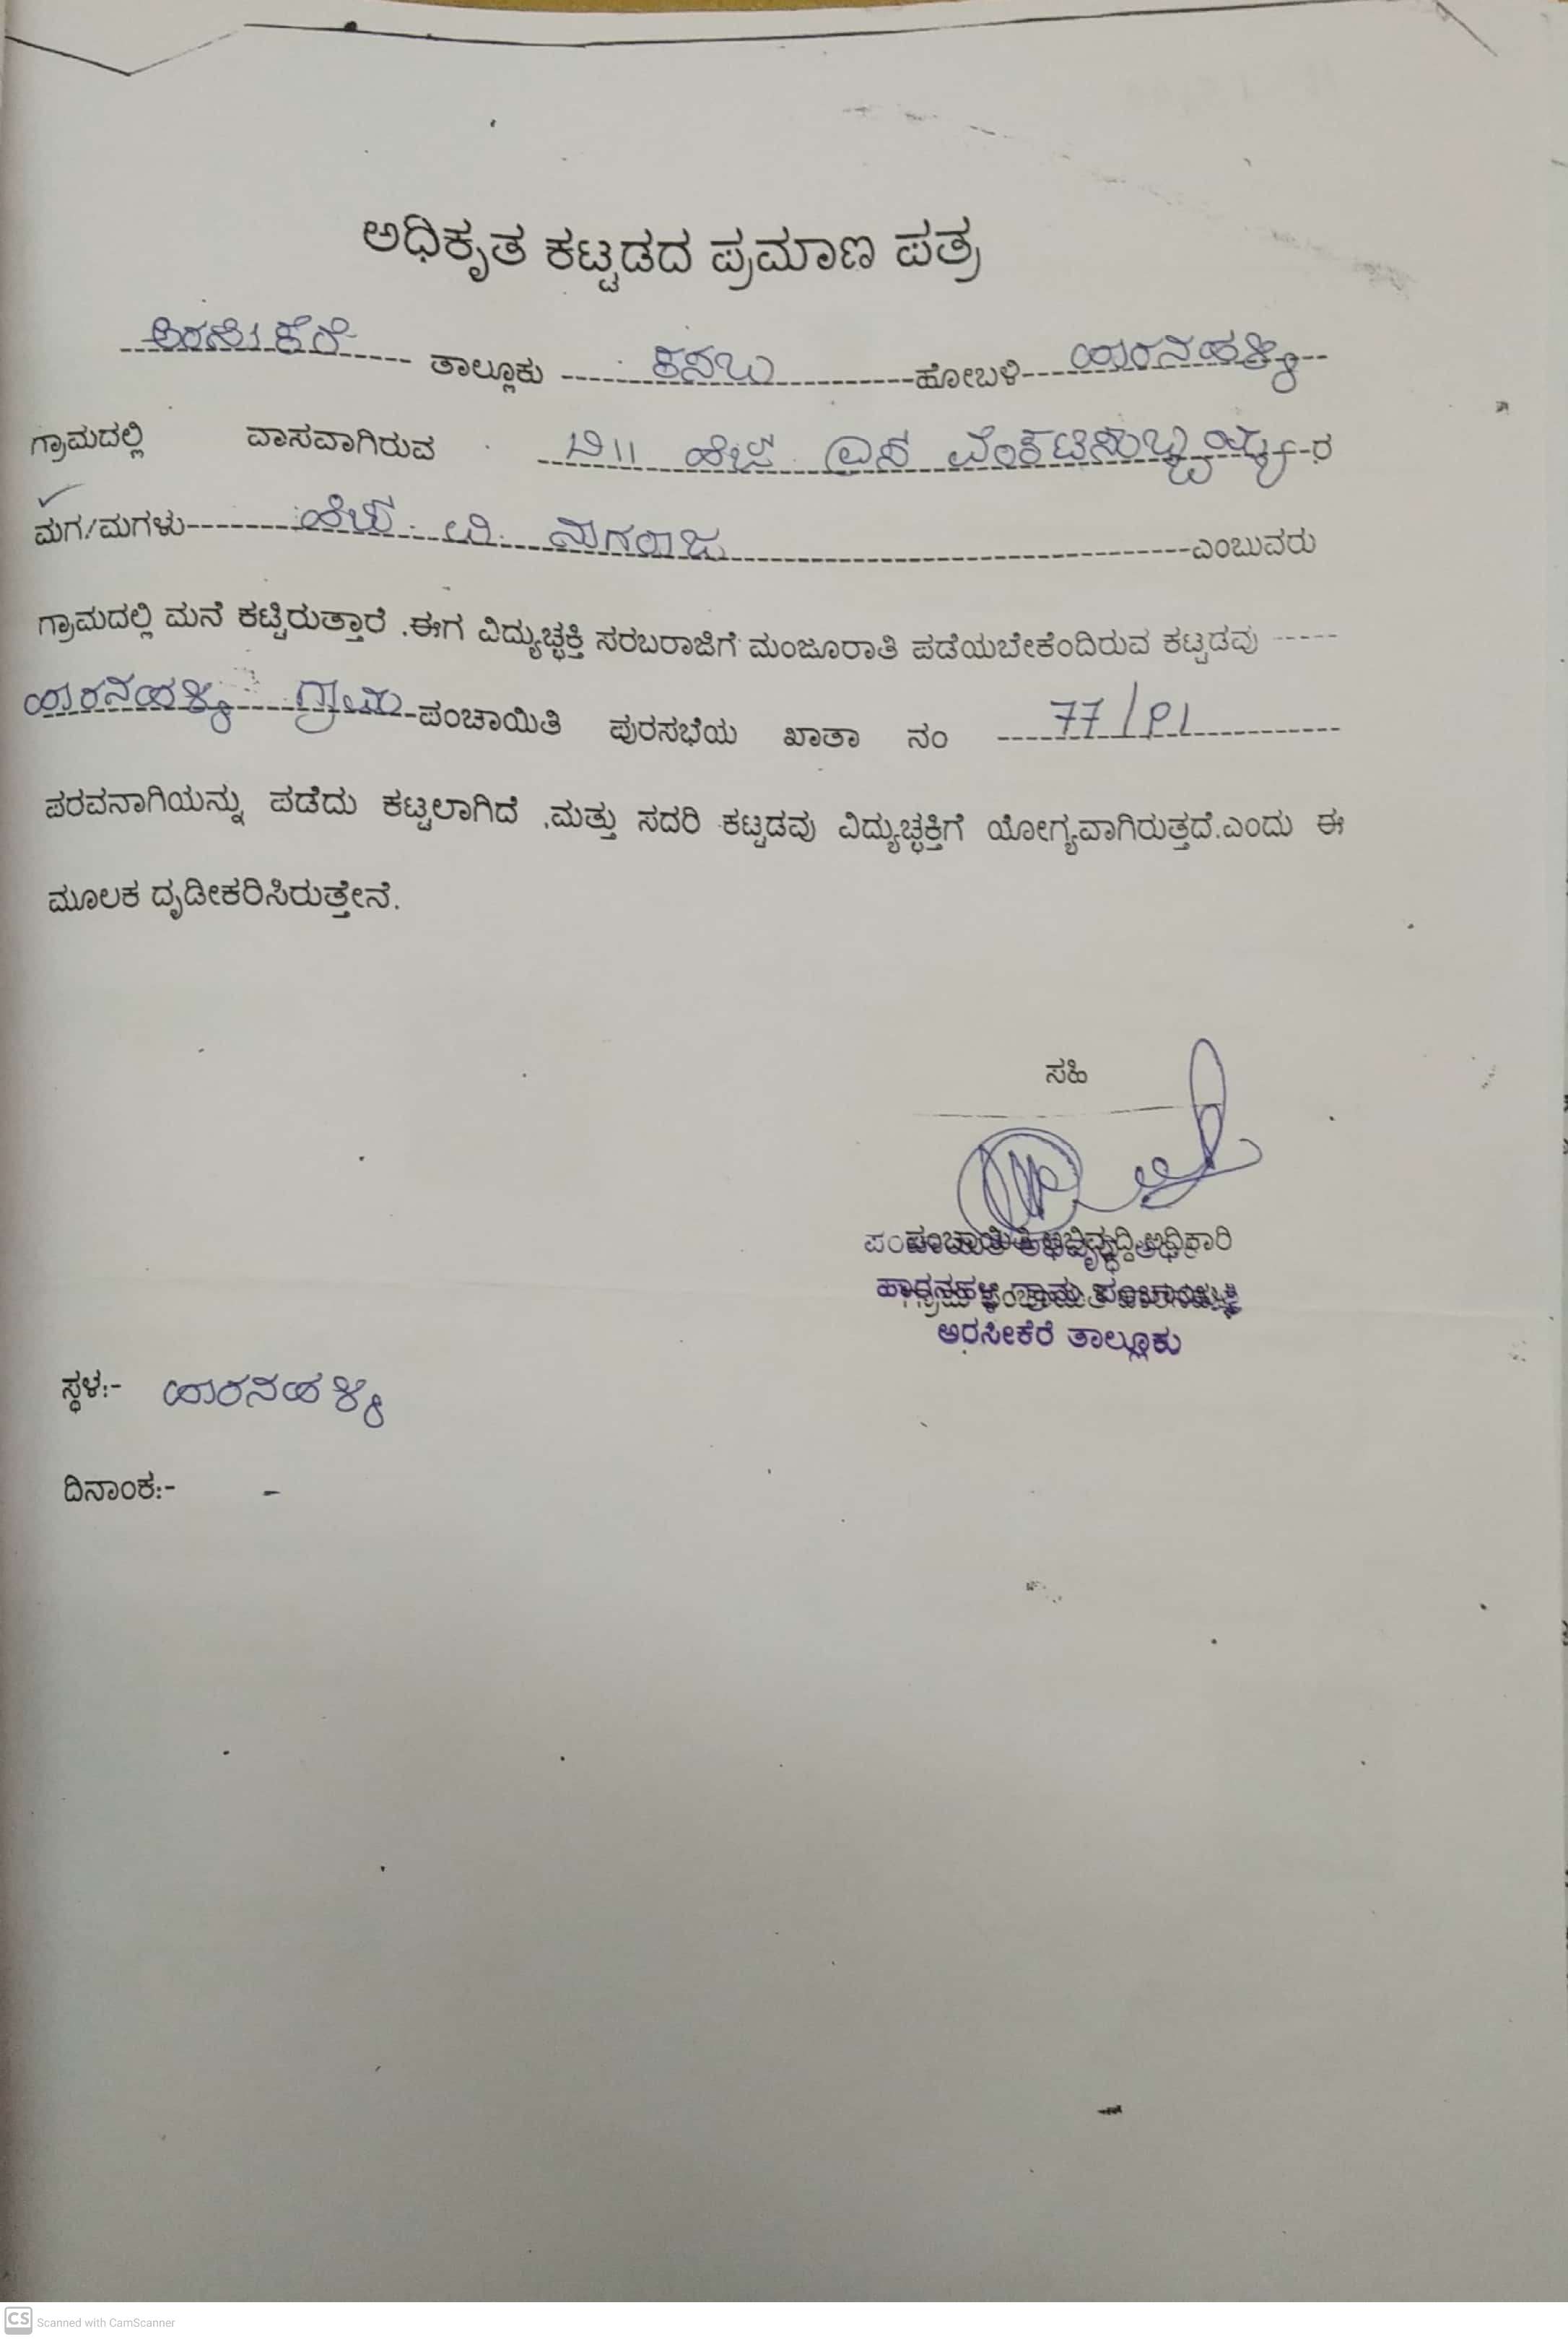 ಅಧಿಕೃತ ಕಟ್ಟಡದ ಪ್ರಮಾಣ ಪತ್ರ
ಅರಸೀಕೆರೆ ತಾಲ್ಲೂಕು ಕಸಬಾ ಹೋಬಳಿ ಹಾರನಹಳ್ಳಿ
ಗ್ರಾಮದಲ್ಲಿ ವಾಸವಾಗಿರುವ ಬಿ|| ಹೆಚ್ ಎಸ್ ವೆಂಕಟಸುಬ್ಬಯ್ಯ ರ
ಮಗ/ಮಗಳು ಹೆಚ್. ವಿ. ನಾಗರಾಜ ಎಂಬುವರು
ಗ್ರಾಮದಲ್ಲಿ ಮನೆ ಕಟ್ಟಿರುತ್ತಾರೆ .ಈಗ ವಿದ್ಯುಚ್ಛಕ್ತಿ ಸರಬರಾಜಿಗೆ ಮಂಜೂರಾತಿ ಪಡೆಯಬೇಕೆಂದಿರುವ ಕಟ್ಟಡವು -----
ಹಾರನಹಳ್ಳಿ ಗ್ರಾಮ ಪಂಚಾಯಿತಿ ಪುರಸಭೆಯ ಖಾತಾ ನಂ 77/P1
ಪರವನಾಗಿಯನ್ನು ಪಡೆದು ಕಟ್ಟಲಾಗಿದೆ .ಮತ್ತು ಸದರಿ ಕಟ್ಟಡವು ವಿದ್ಯುಚ್ಛಕ್ತಿಗೆ ಯೋಗ್ಯವಾಗಿರುತ್ತದೆ.ಎಂದು ಈ
ಮೂಲಕ ದೃಡೀಕರಿಸಿರುತ್ತೇನೆ.
ಸಹಿ
ಪಂಚಾಯಿತಿ ಅಭಿವೃದ್ಧಿ ಅಧಿಕಾರಿ
ಹಾರನಹಳ್ಳಿ ಗ್ರಾಮ ಪಂಚಾಯಿತಿ
ಅರಸೀಕೆರೆ ತಾಲ್ಲೂಕು
ಸ್ಥಳ:- ಹಾರನಹಳ್ಳಿ
ದಿನಾಂಕ:- -
CS Scanned with CamScanner